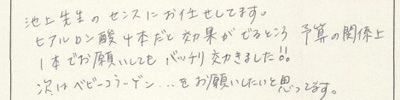 池上先生のセンスにお任せしてます。
ヒアルロン酸4本だと効果がでるところ 予算の関係上
1本でお願いしても バッチリ効きました!!
次はベビーコラーゲン...をお願いしたいと思ってます。